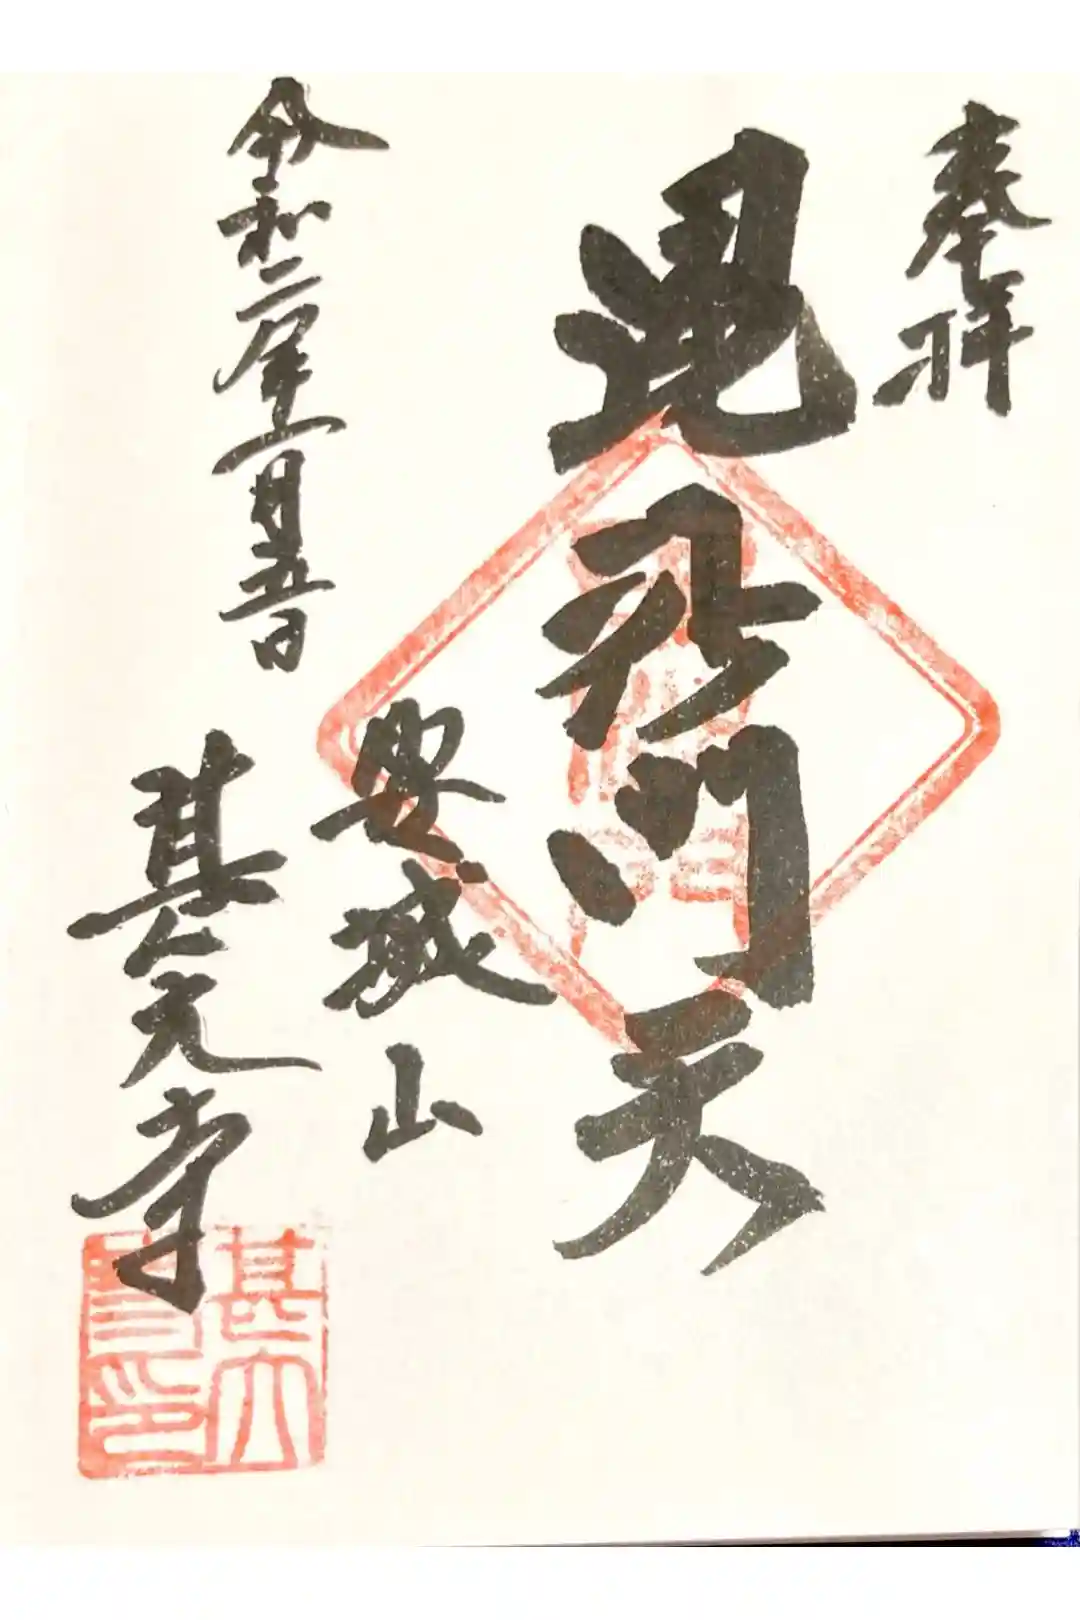 奉拝
毘沙門天
安城山
令和二年十一月五日
甚大寺
甚大
寺印